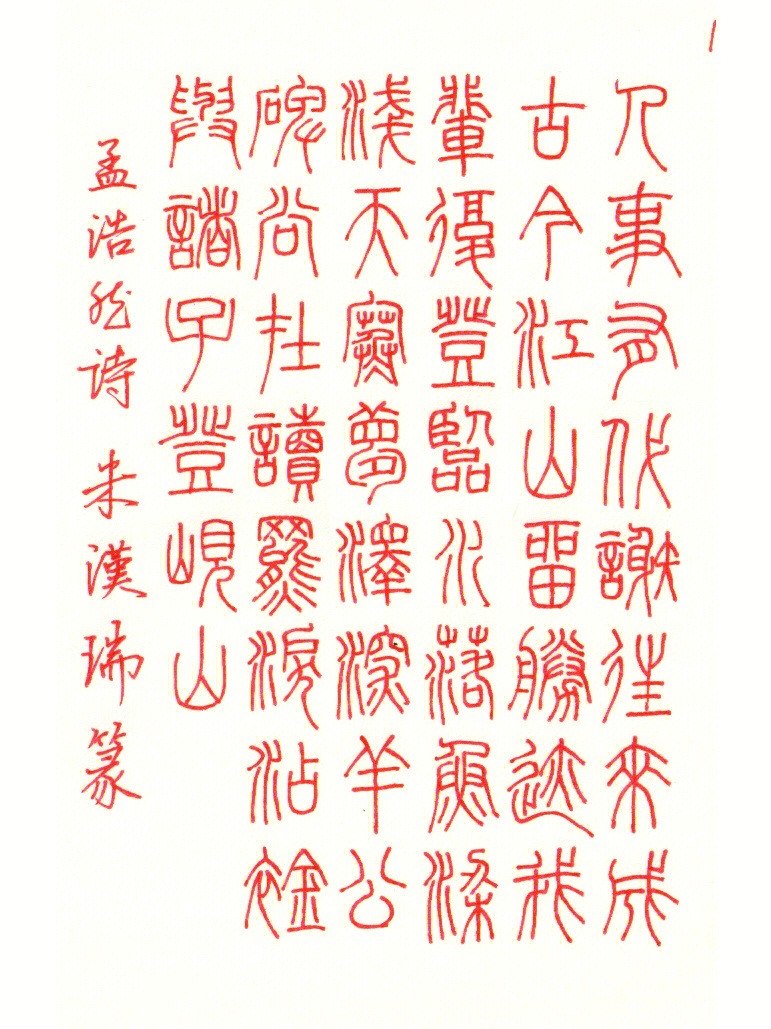 人事有代謝往來成
古今江山留勝迹我
輩復登臨水落魚梁
淺天寒夢澤深羊公
碑尚在讀罷淚沾襟
與諸子登峴山
孟浩然诗 朱漢瑞篆